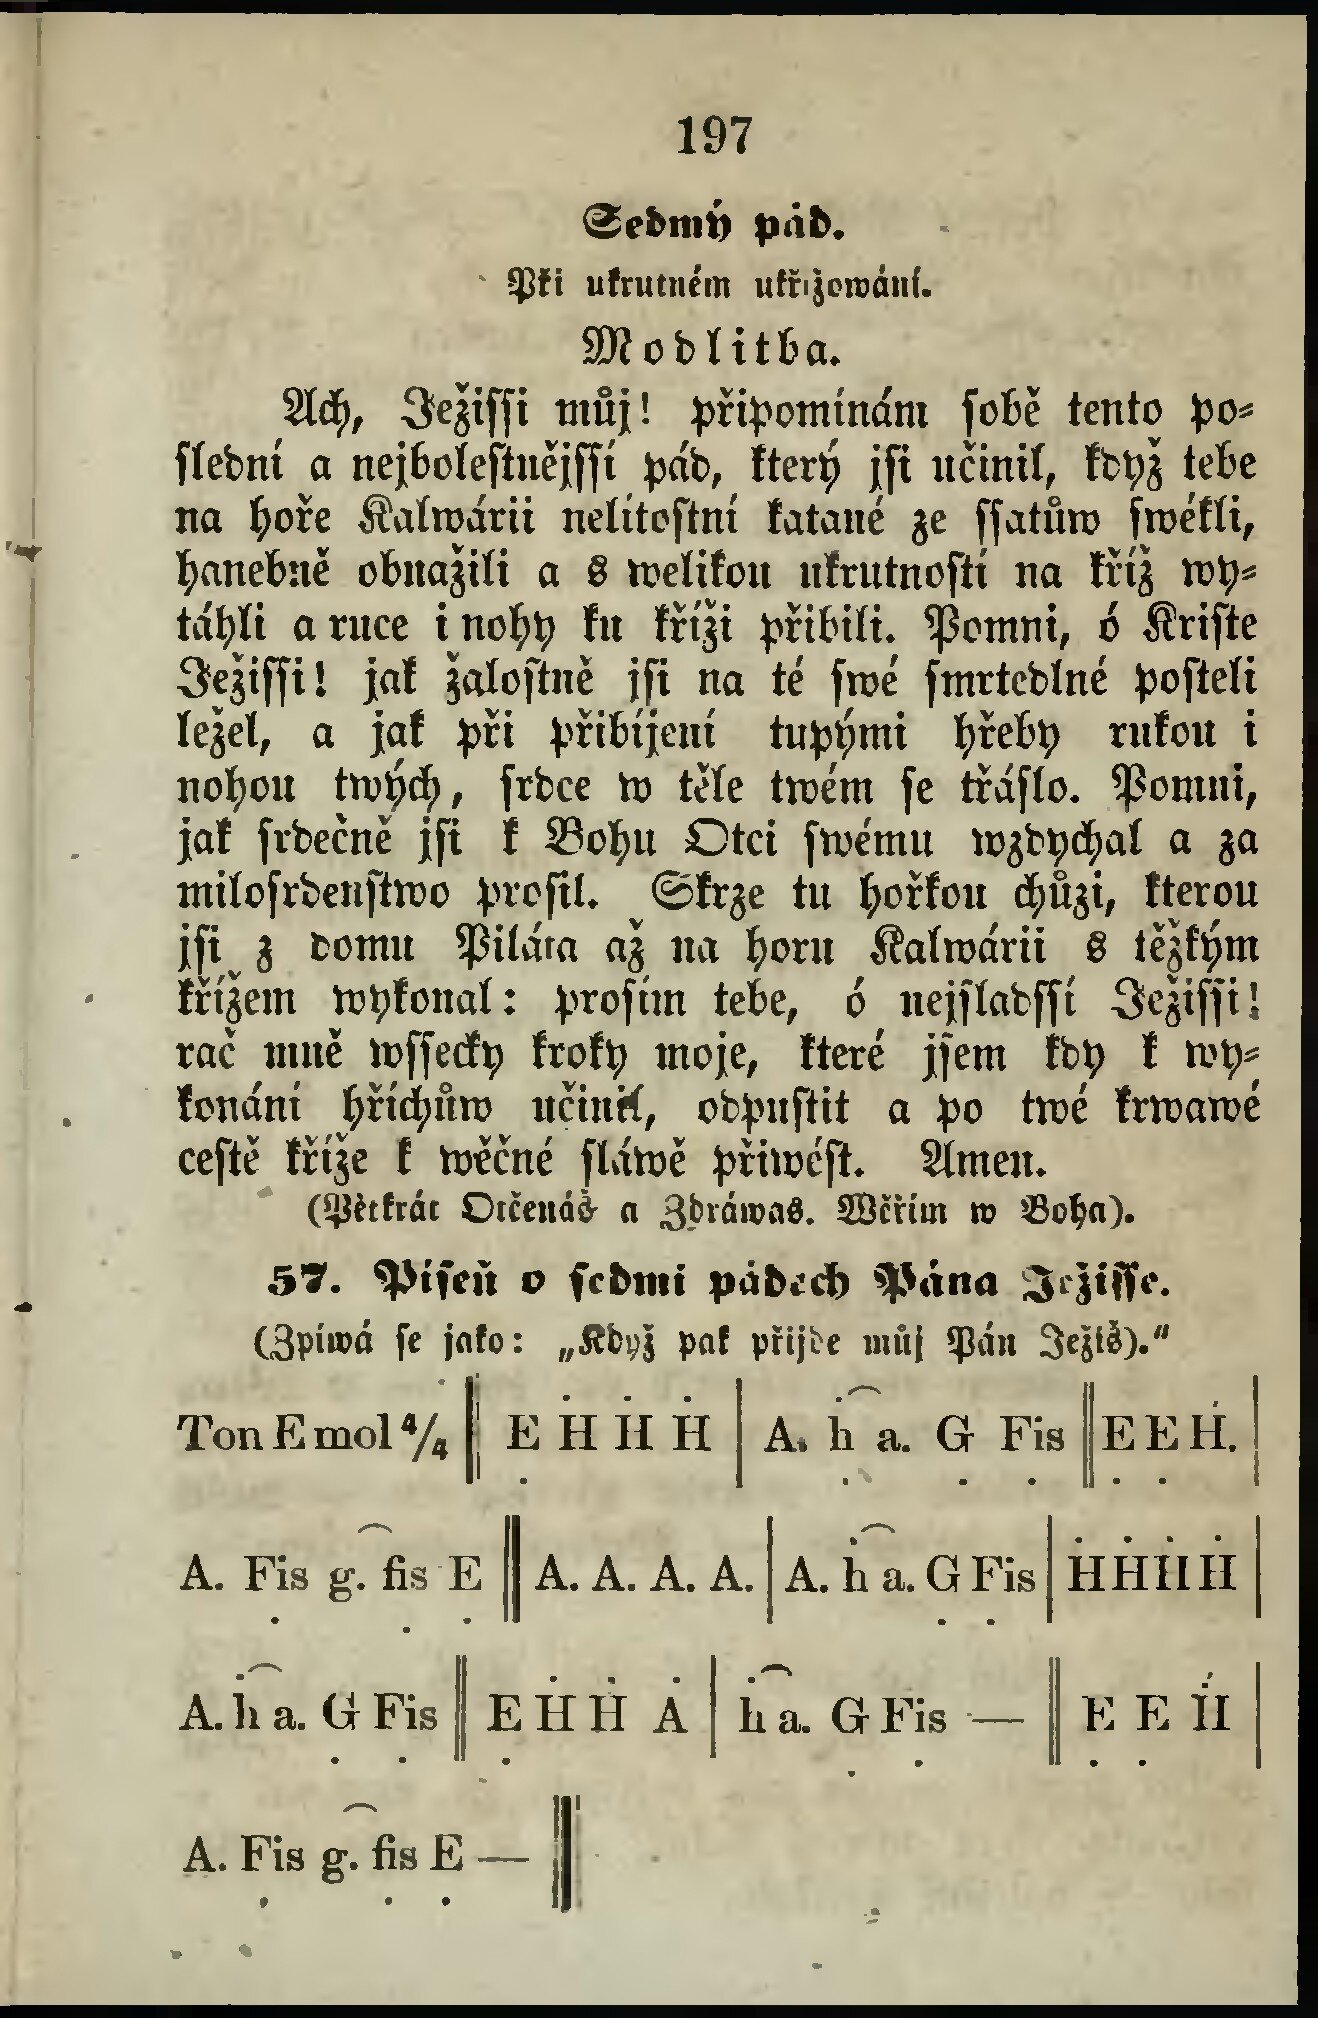 197
Sedmý pád.
Při ukrutném ukřižowání.
Modlitba.
Ach, Ježissi můj! připomínám sobě tento po-
slední a nejbolestnějssí pád, který jsi učinil, když tebe
na hoře Kalwárii nelítostní katané ze ssatůw swékli,
hanebně obnažili a s welikou ukrutností na kříž wy-
táhli a ruce i nohy ku kříži přibili. Pomni, ó Kriste
Ježissi! jak žalostně jsi na té swé smrtedlné posteli
ležel, a jak při přibíjení tupými hřeby rukou i
nohou twých, srdce w těle twém se třáslo. Pomni,
jak srdečně jsi k Bohu Otci swému wzdychal a za
milosrdenstwo prosil. Skrze tu hořkou chůzi, kterou
jsi z domu Piláta až na horu Kalwárii s těžkým
křížem wykonal: prosím tebe, ó nejsladssí Ježissi!
rač mně wssecky kroky moje, které jsem kdy k wy-
konání hříchůw učinil, odpustit a po twé krwawé
cestě kříže k wěčné sláwě přiwést. Amen.
(Pětkrát Otčenáš a Zdráwas. Wěřím w Boha).
57. Píseň o sedmi pádech Pána Ježisse.
(Zpíwá se jako: „Když pak přijde můj Pán Ježiš)."
Ton E mol 4/4 || E Ḣ Ḣ Ḣ | A. ḣ a. G Fis || E E Ḣ. |
A. Fis g. fis E || A. A. A. A. | A. ḣ a. G Fis | Ḣ Ḣ Ḣ Ḣ |
A. ḣ a. G Fis || E Ḣ Ḣ Ȧ | ḣ a. G Fis — || E E Ḣ |
A. Fis g. fis E — ||